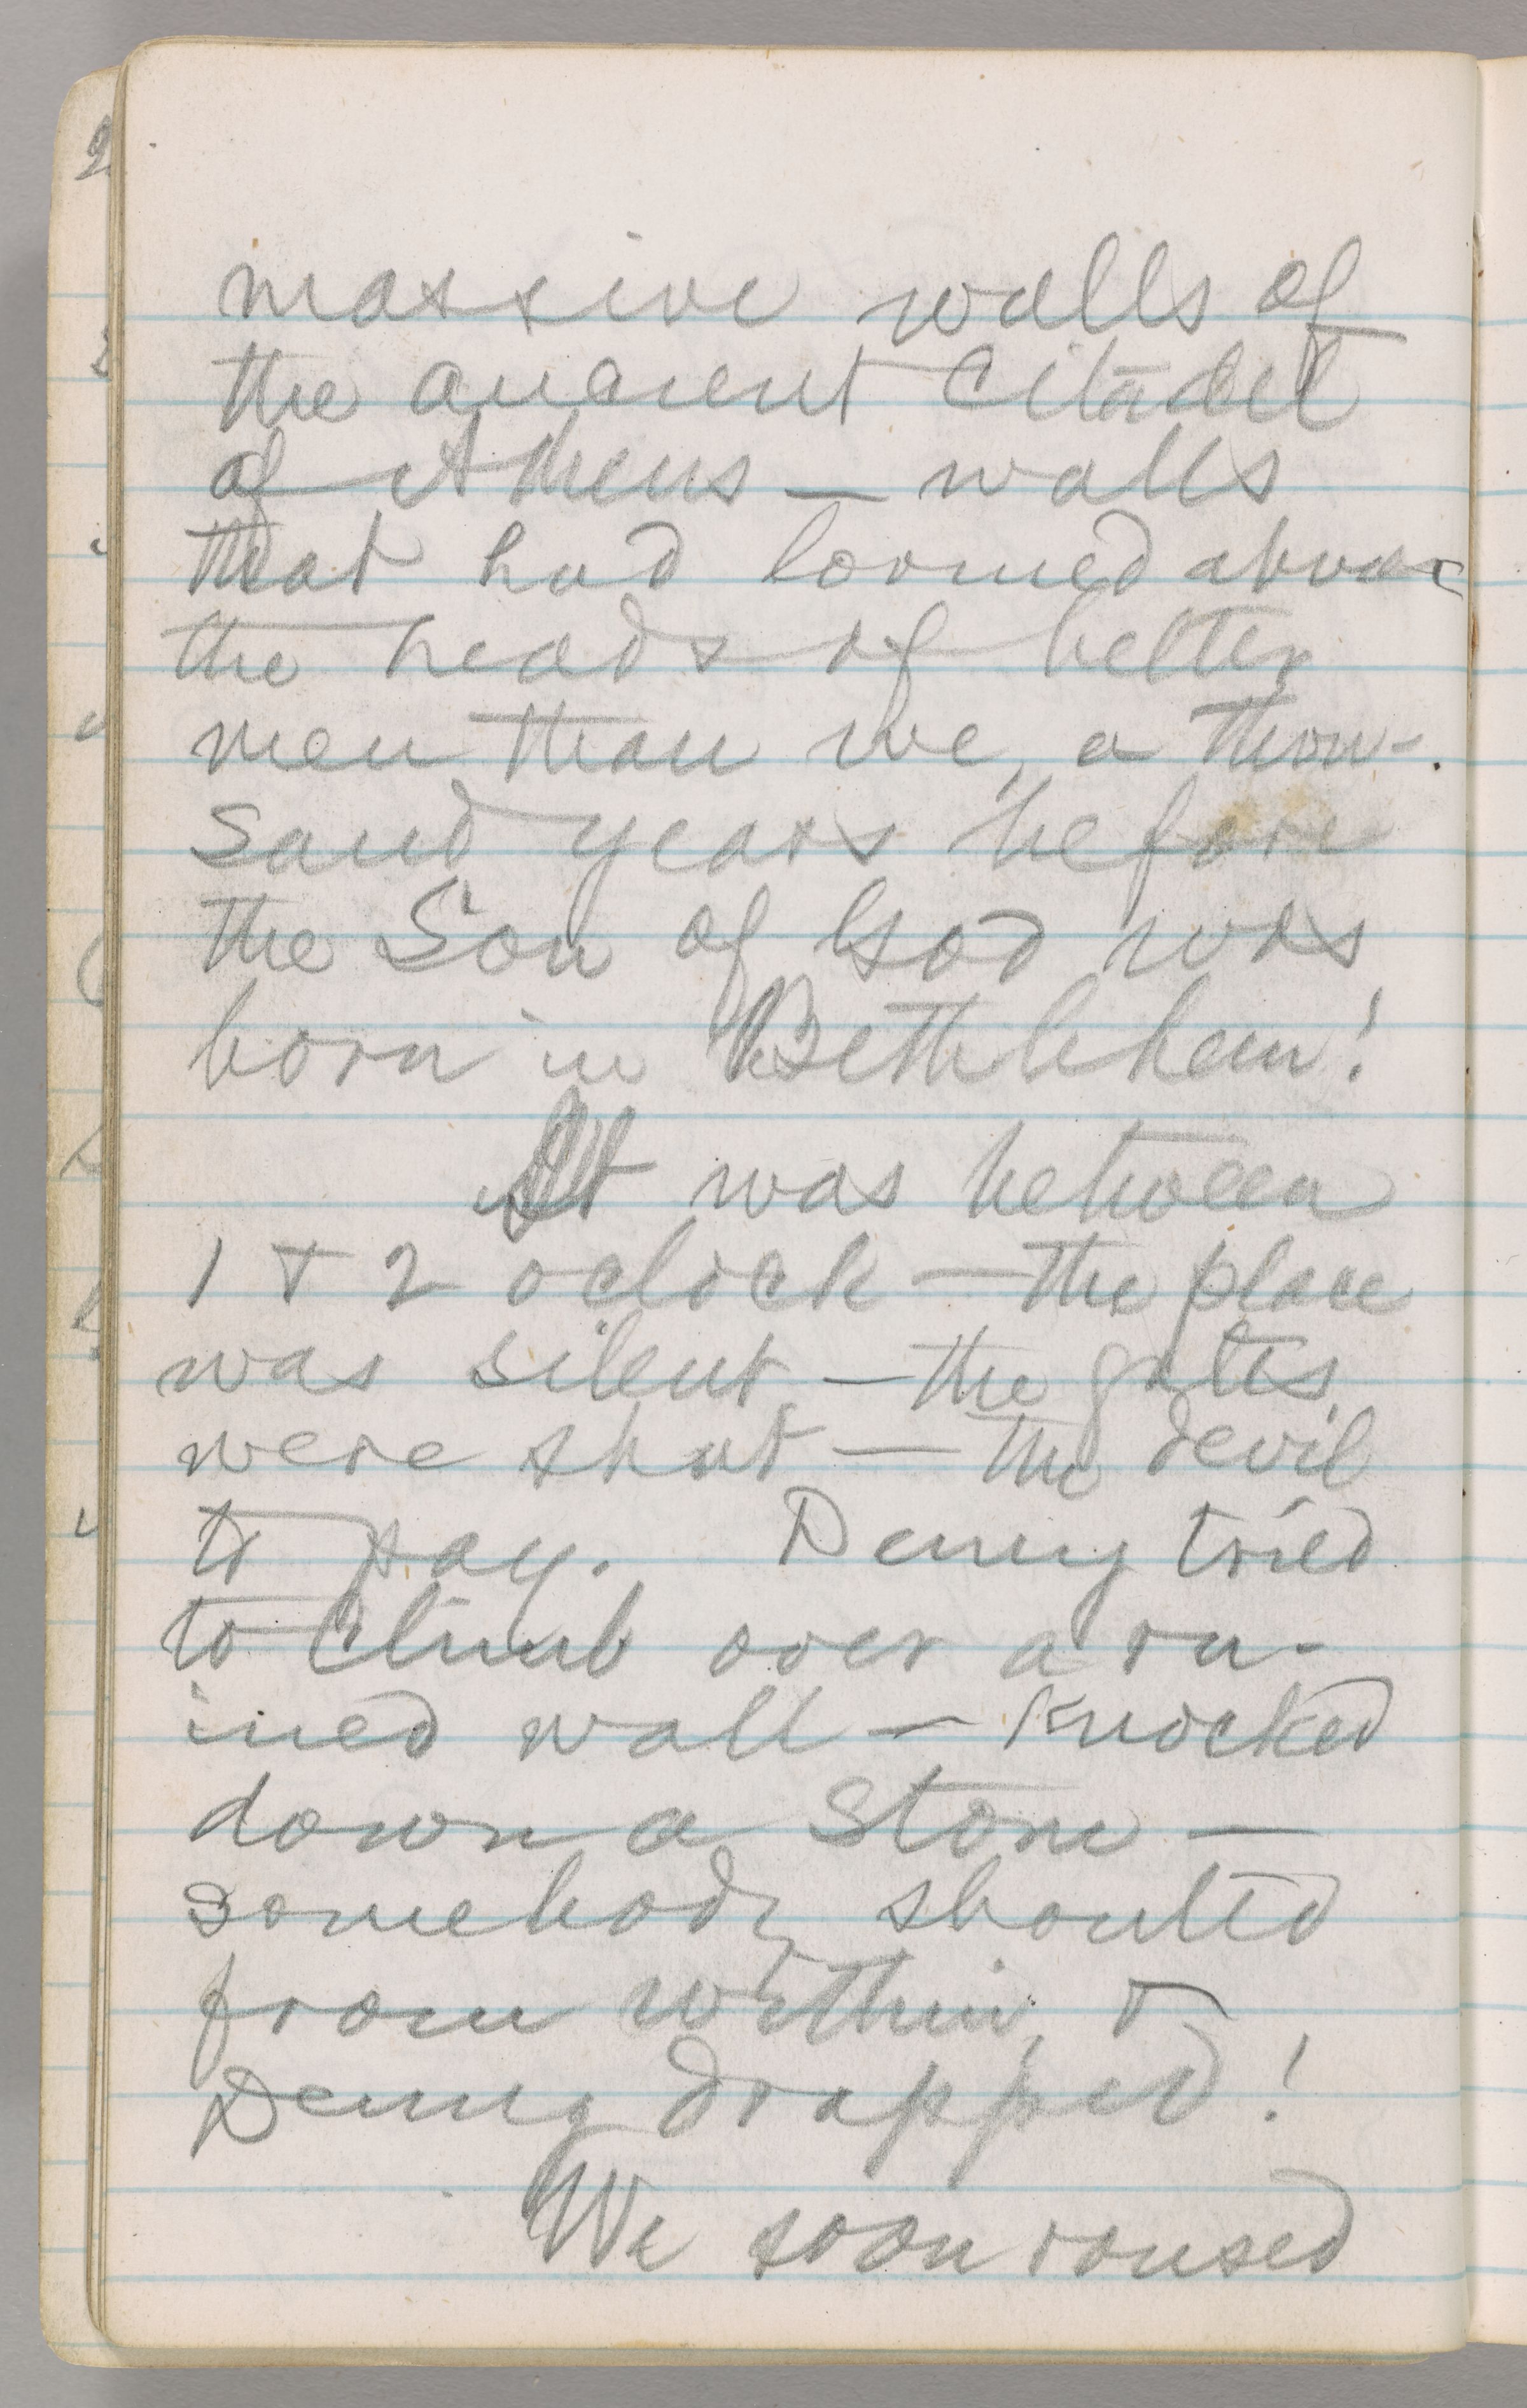 massive walls of
the ancient citadel
of Athens — walls
that had loomed above
the heads of better
men than we, a thou-
sand years before
the Son of God was
born in Bethlehem!
It was between
1 & 2 oclock — the place
was silent — the gates
were shut — the devil
to pay. Denny tried
to climb over a ru-
ined wall — knocked
down a stone —
somebody shouted
from within, &
Denny dropped!
We soon roused